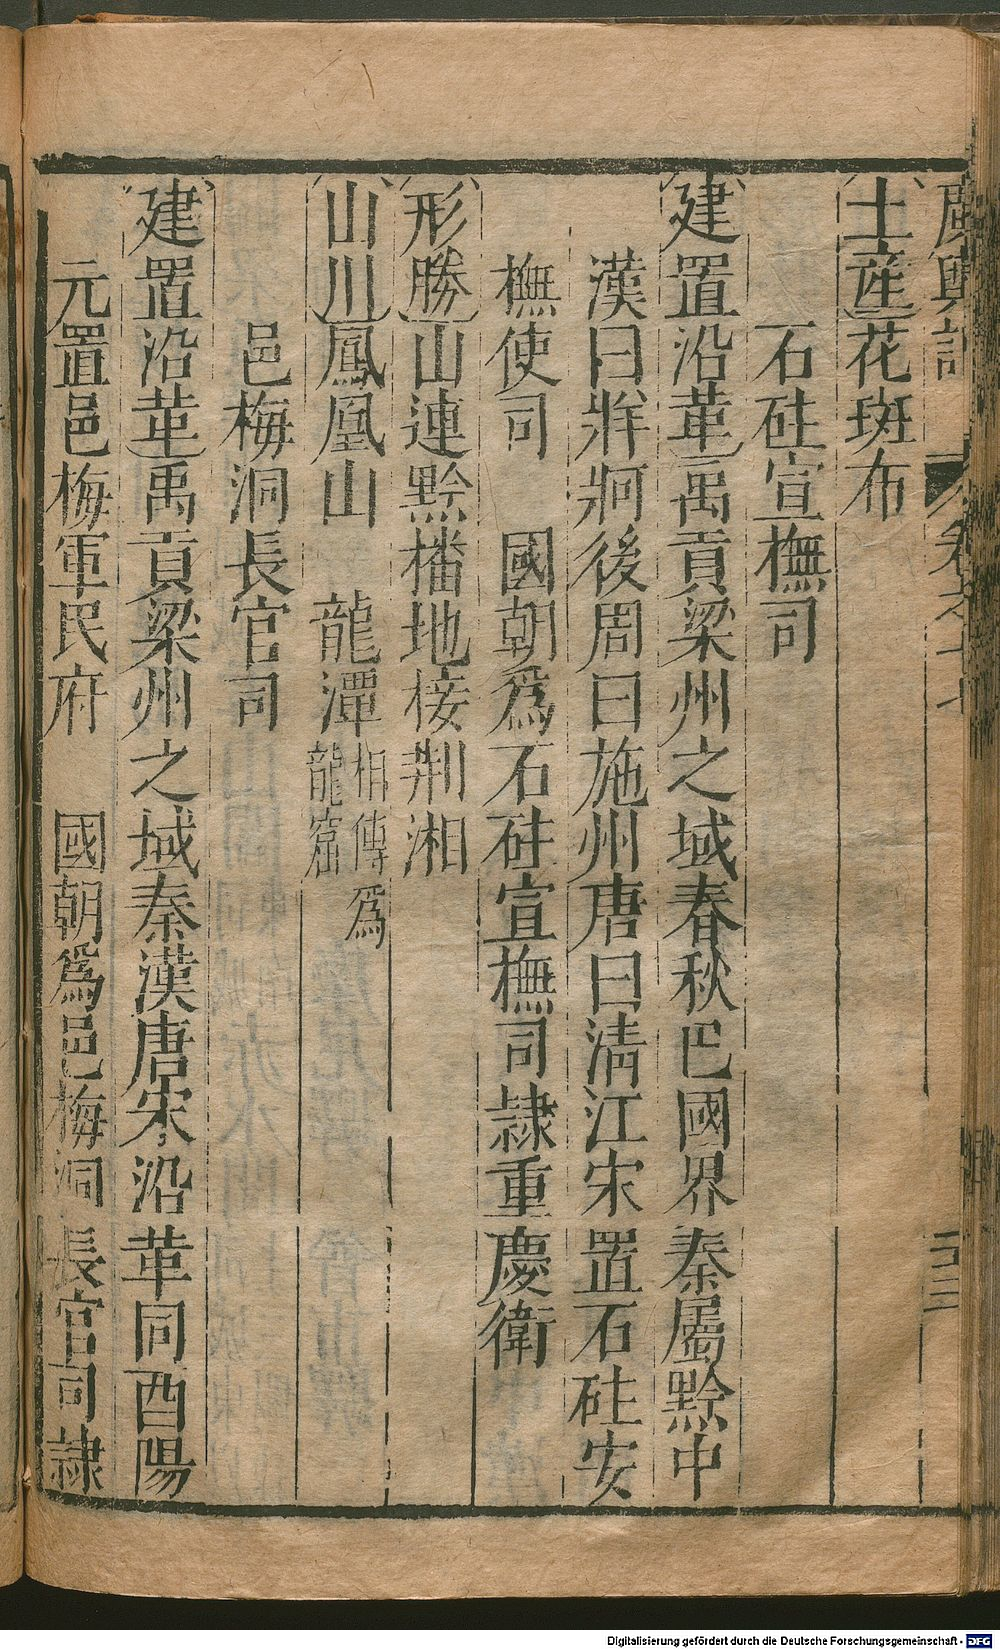 廣輿記 卷之十七
土產花斑布
石砫宣撫司
建置沿革禹貢梁州之域春秋巴國界秦屬黔中
漢曰牂牁後周曰施州唐曰清江宋置石砫安
撫使司 國朝爲石砫宣撫司隷重慶衛
形勝山連黔播地接荆湘
山川鳳凰山 龍潭相傳爲龍窟
邑梅洞長官司
建置沿革禹貢梁州之域秦漢唐宋沿革同酉陽
元置邑梅軍民府 國朝爲邑梅洞長官司隷
Digitalisierung gefördert durch die Deutsche Forschungsgemeinschaft - DFG